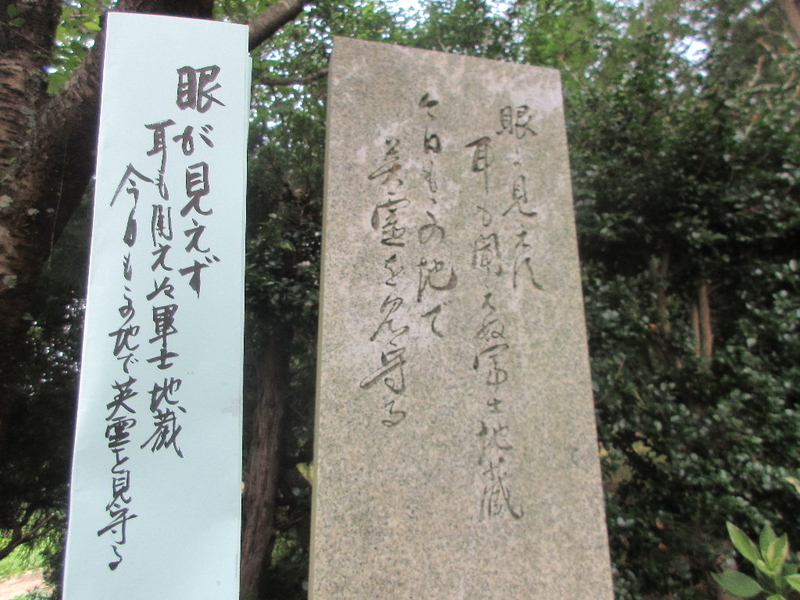 眼が見えず
耳も聞えぬ軍士地蔵
今日もこの地で英霊を見守る
眼が見えず
耳も聞えぬ軍士地蔵
今日もこの地で
英霊を見守る